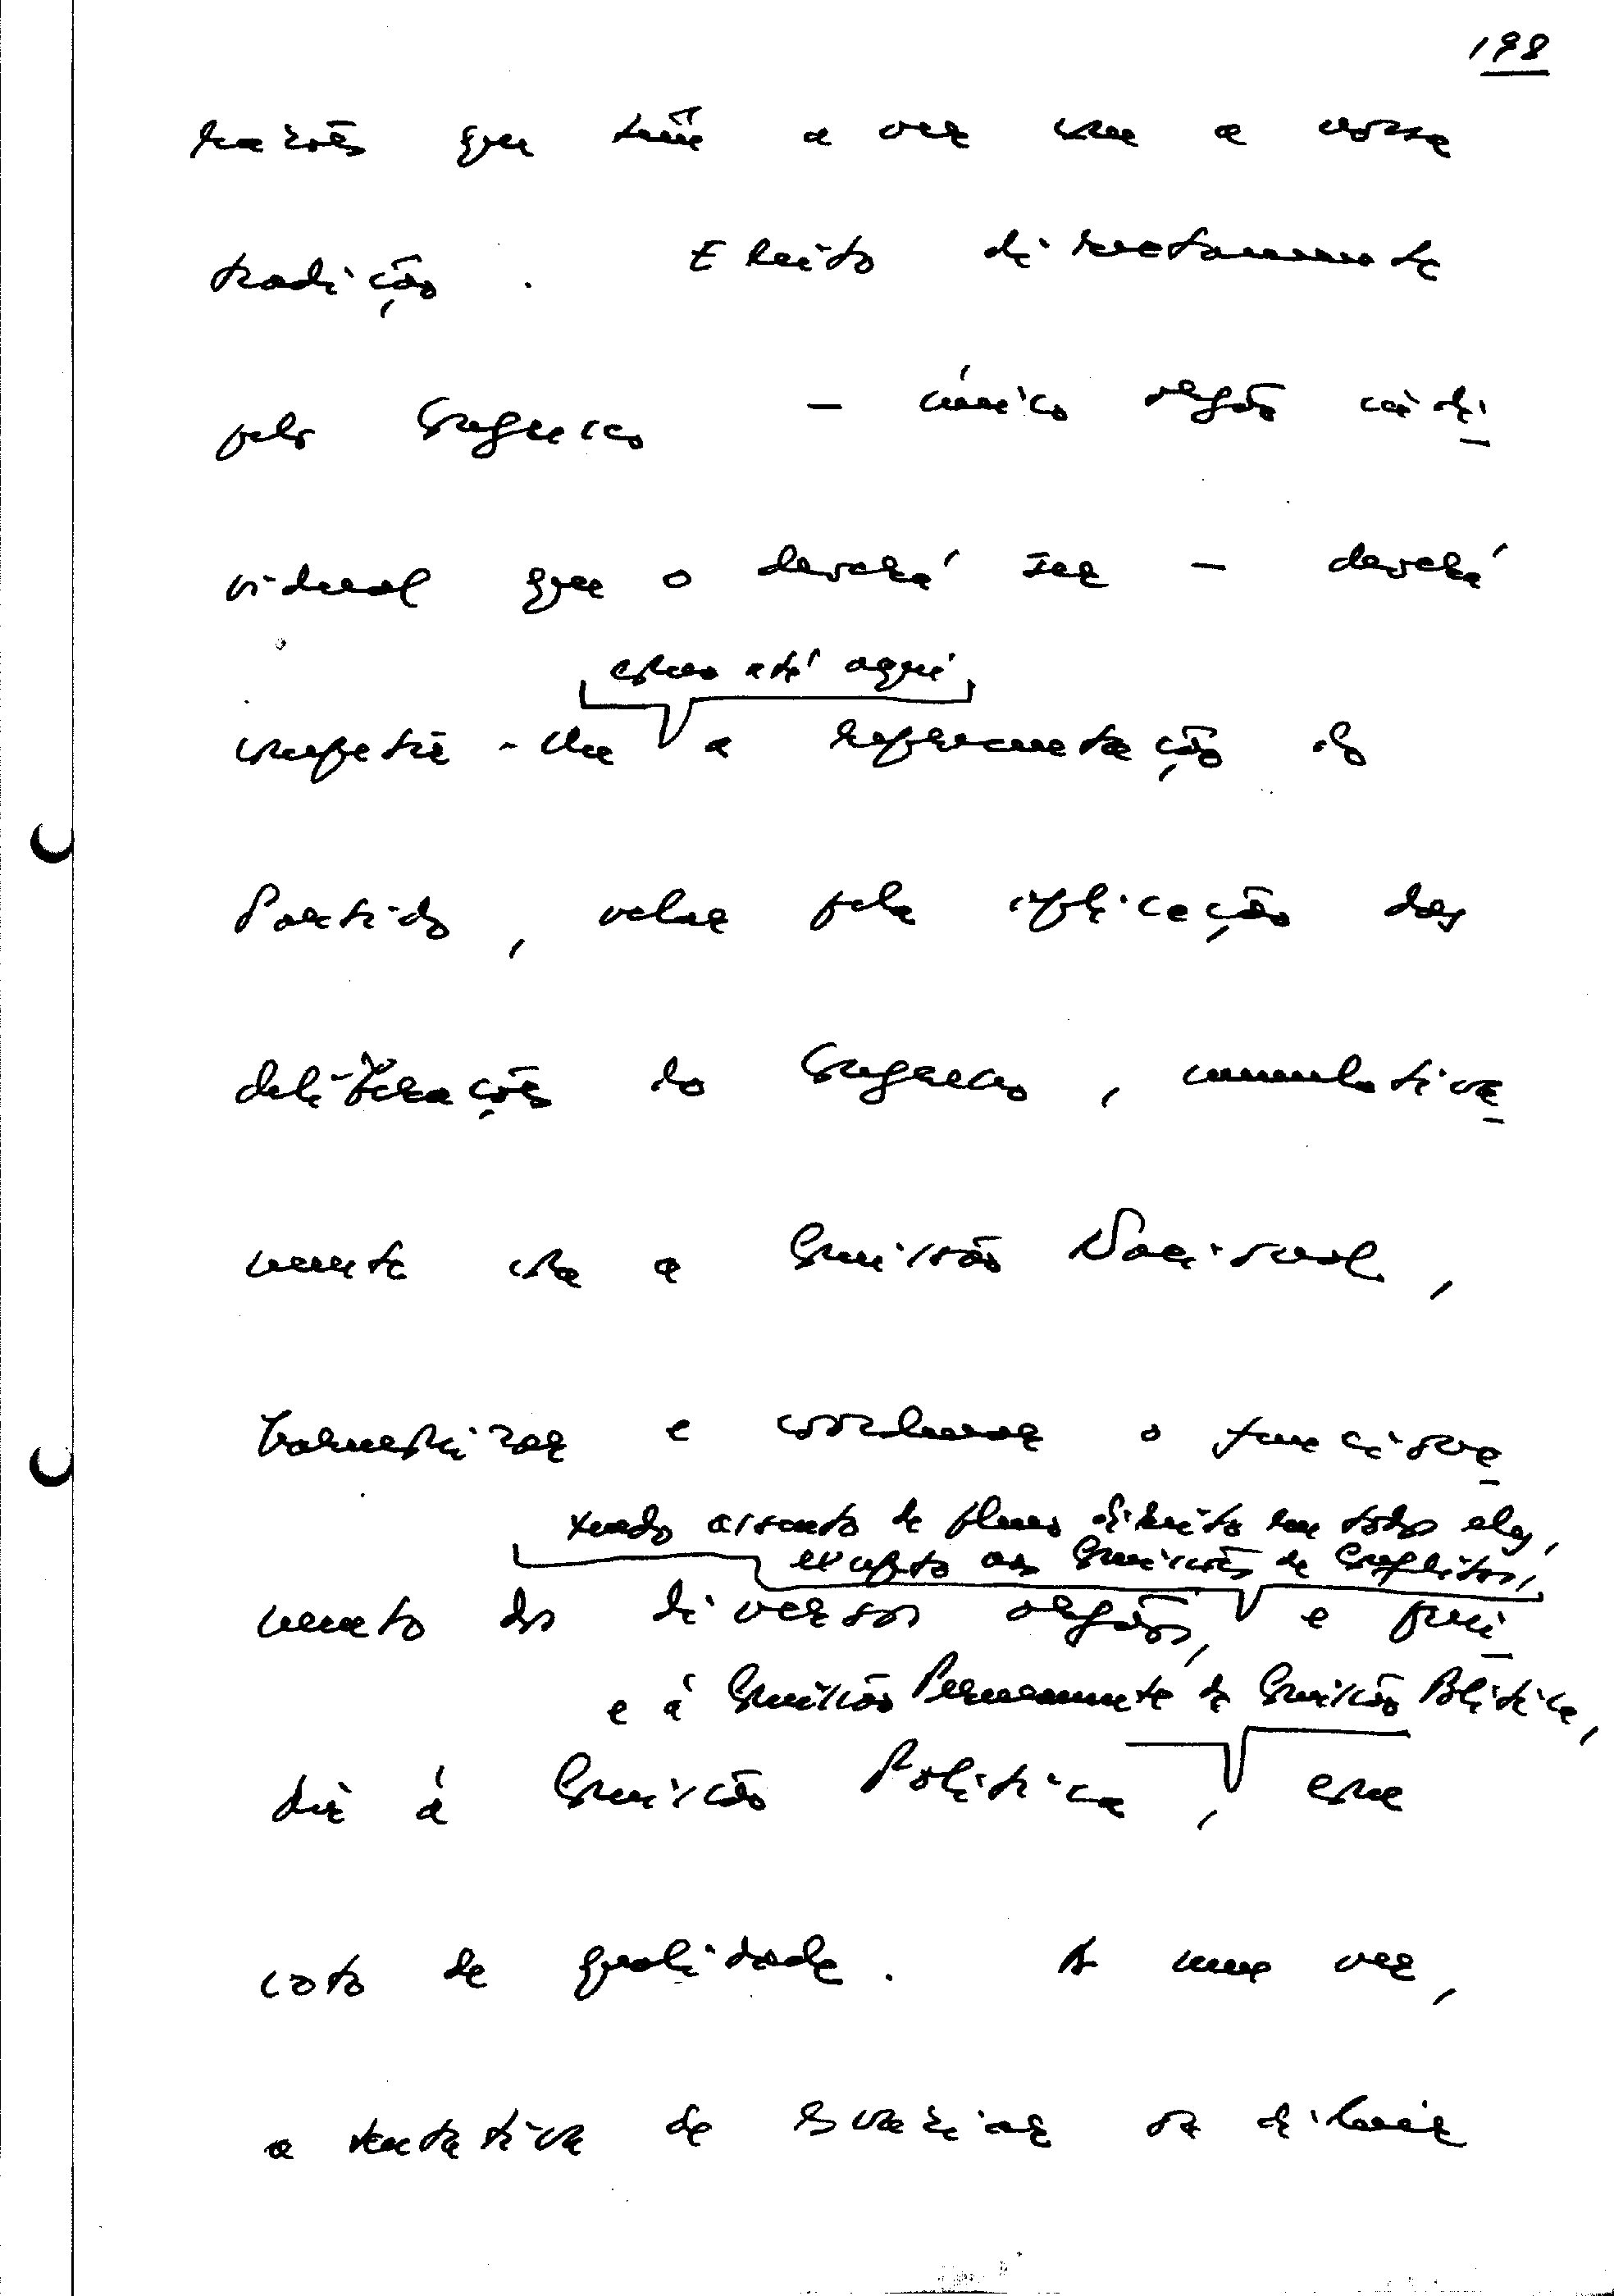 198
razões que têm a ver com a nossa
tradição. Eleito directamente
pelo Congresso - único órgão indi
vidual que o deverá ser - deverá
como até aqui,
competir-lhe a representação do
Partido, velar pela aplicação das
deliberações do Congresso, cumulativa
mente com a Comissão Nacional,
harmonizar e coordenar o funciona
tendo assento de pleno direito em todos eles,
excepto as Comissões de Conflitos,
mento dos diversos órgãos, e presi
e à Comissão Permanente da Comissão Política,
dir à Comissão Política, com
voto de qualidade. A meu ver,
a tentativa de esvaziar ou diluir